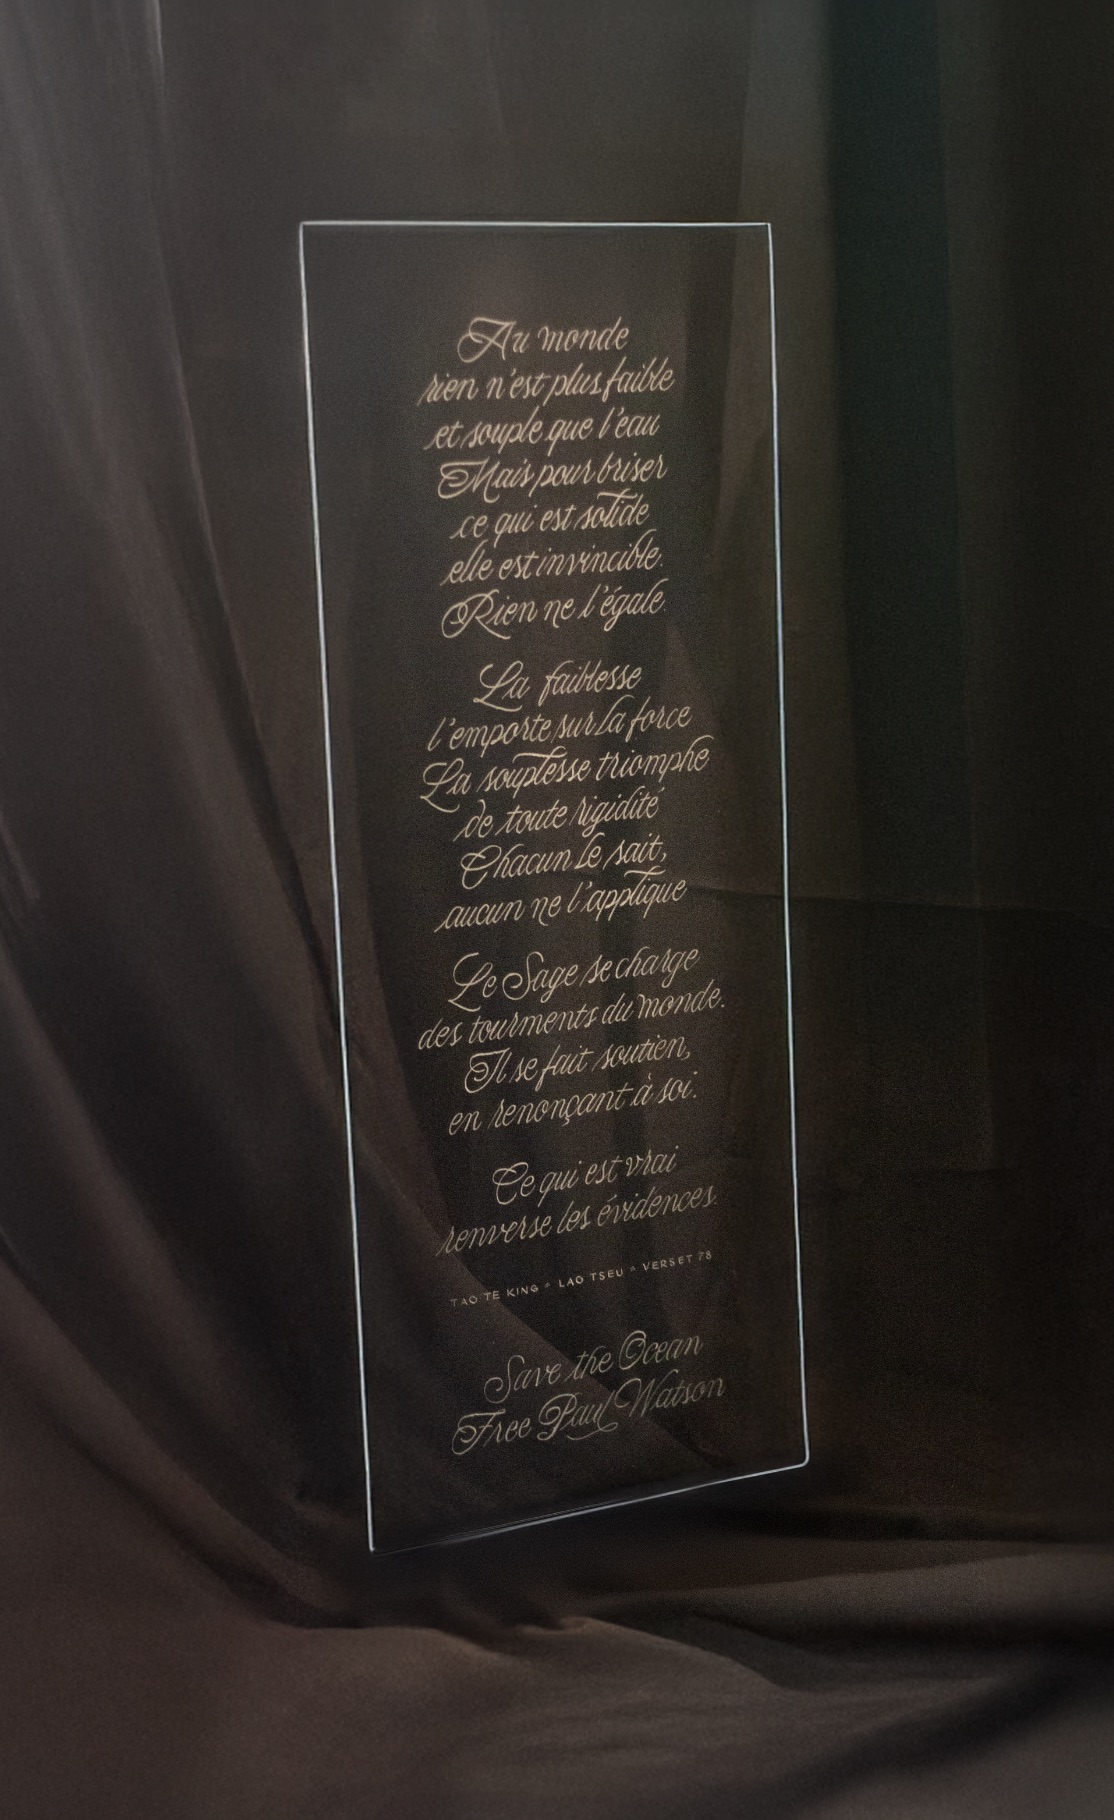 Au monde
rien n'est plus faible
et souple que l'eau
Mais pour briser
ce qui est solide
elle est invincible.
Rien ne l'égale.
La faiblesse
l'emporte sur la force
La souplesse triomphe
de toute rigidité
Chacun le sait,
aucun ne l'applique
Le Sage se charge
des tourments du monde.
Il se fait soutien,
en renonçant à soi.
Ce qui est vrai
renverse les évidences.
TAO TE KING * LAO TSEU * VERSET 78
Save the Ocean
Free Paul Watson